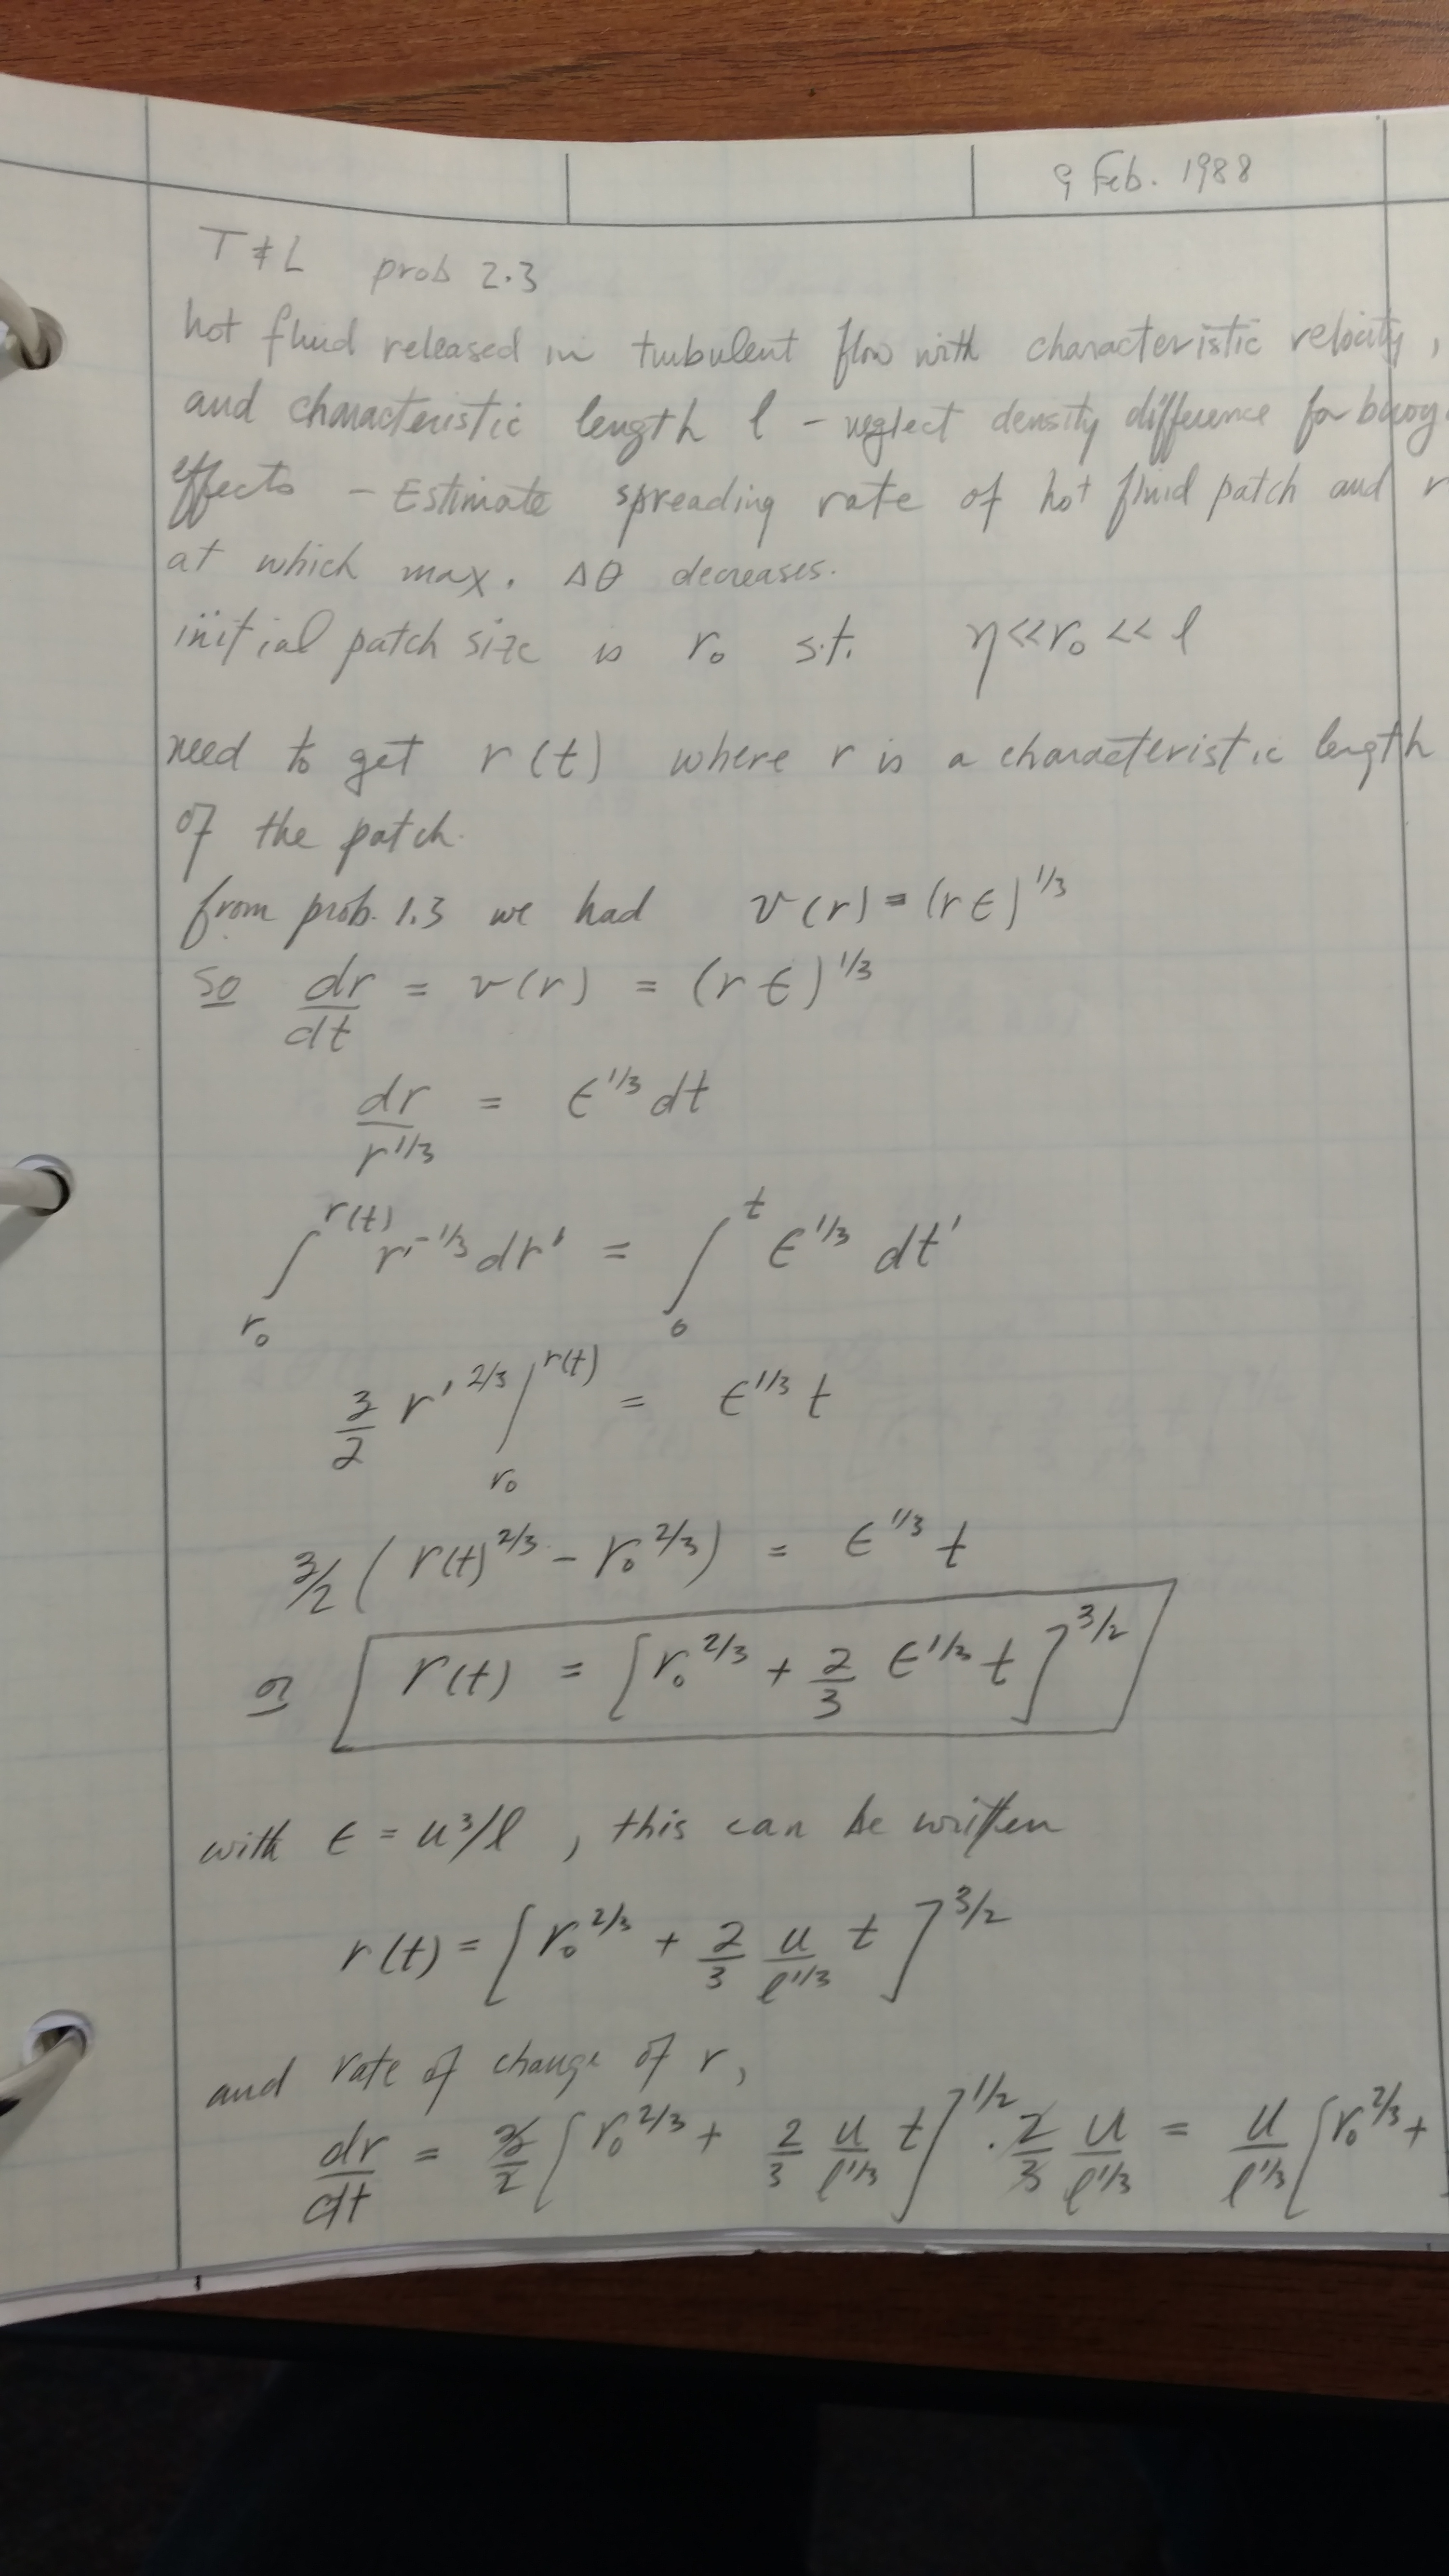 9 Feb. 1988
T & L prob 2.3
hot fluid released in turbulent flow with characteristic velocity,
and characteristic length l - neglect density difference for buoy
effects - Estimate spreading rate of hot fluid patch and r
at which max. Δθ decreases.
initial patch size is r₀ s.t. η << r₀ << l
need to get r(t) where r is a characteristic length
of the patch.
from prob. 1.3 we had v(r) = (rϵ)^1/3
so dr/dt = v(r) = (rϵ)^1/3
dr/r^1/3 = ϵ^1/3 dt
∫_r₀^r(t) r'^-1/3 dr' = ∫_0^t ϵ^1/3 dt'
3/2 r'^2/3 |_r₀^r(t) = ϵ^1/3 t
3/2 ( r(t)^2/3 - r₀^2/3 ) = ϵ^1/3 t
or r(t) = [ r₀^2/3 + 2/3 ϵ^1/3 t ]^3/2
with ϵ = u³/l , this can be written
r(t) = [ r₀^2/3 + 2/3 u/l^1/3 t ]^3/2
and rate of change of r,
dr/dt = 3/2 [ r₀^2/3 + 2/3 u/l^1/3 t ]^1/2 · 2/3 u/l^1/3 = u/l^1/3 [ r₀^2/3 +